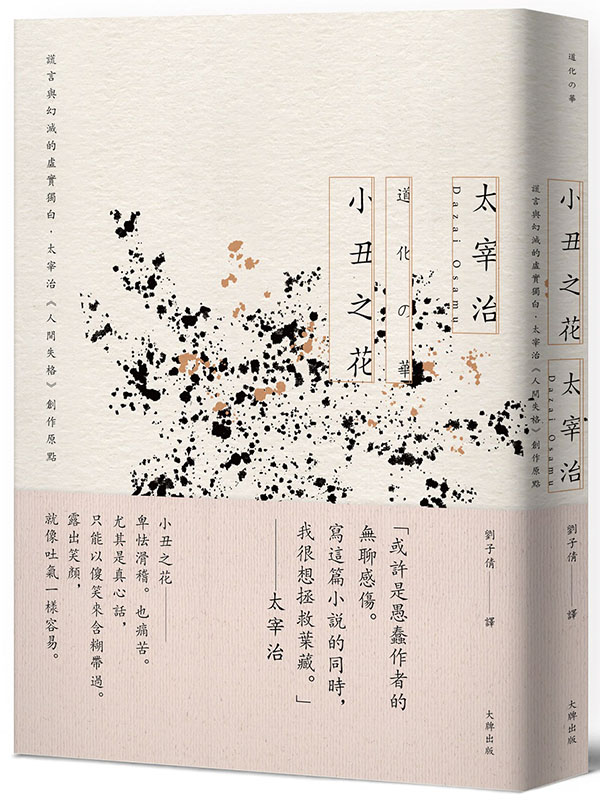 太宰治
Dazai Osamu
道化の華
小丑之花
謊言與幻滅的虛實獨白・太宰治《人間失格》創作原點
「或許是愚蠢作者的
無聊感傷。
寫這篇小說的同時,
我很想拯救葉藏。」
——太宰治
小丑之花——
卑怯滑稽。也痛苦。
尤其是真心話,
只能以傻笑來含糊帶過。
露出笑顏,
就像吐氣一樣容易。
道化の華
小丑之花
謊言與幻滅的虛實獨白・太宰治《人間失格》創作原點
太宰治
Dazai Osamu
劉子倩 譯
大牌出版